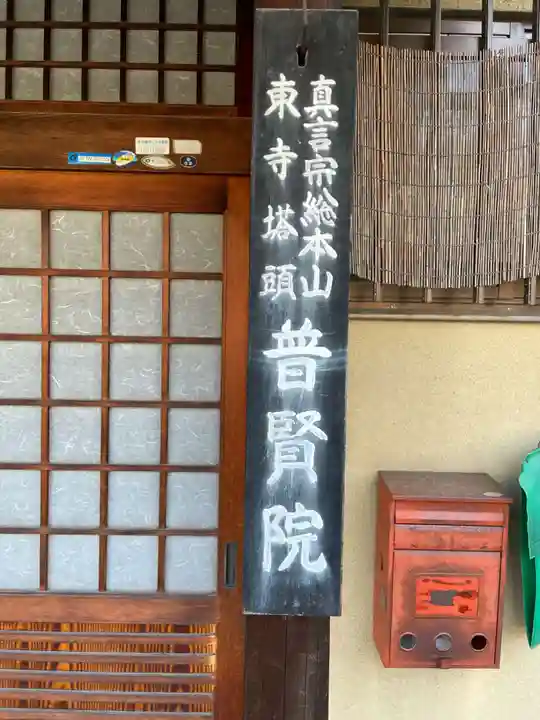 真言宗総本山
東寺塔頭
普賢院